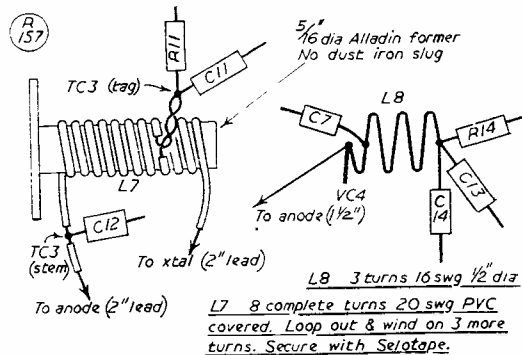 R
157
5/16" dia Alladin former
No dust iron slug
R11
C11
TC3 (tag)
L7
C12
TC3
(stem)
To xtal (2" lead)
To anode (2" lead)
L8
C7
R14
C13
C
14
VC4
To anode (1½")
L8 3 turns 16 swg ½" dia
L7 8 complete turns 20 swg PVC
covered. Loop out & wind on 3 more
turns. Secure with Selotape.